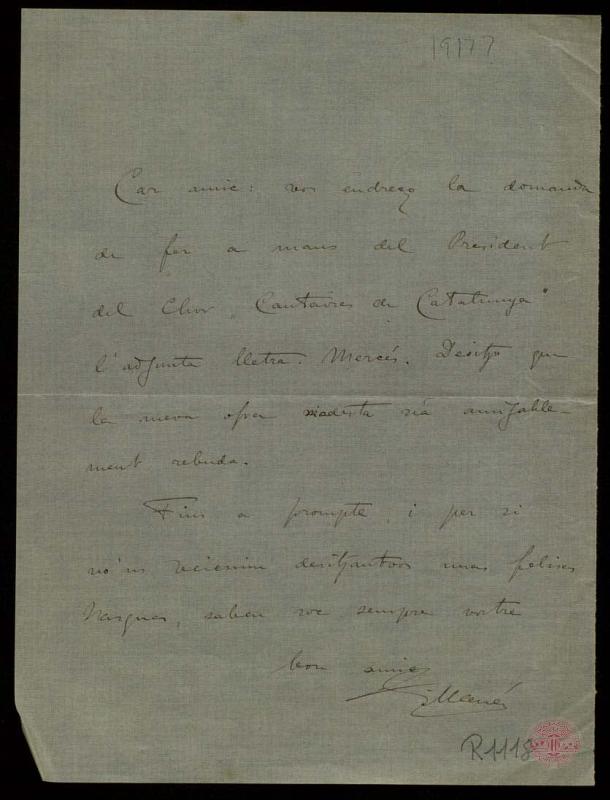 1917?
Car amic: vos endreço la demanda
de fer a mans del President
del Chor "Cantaires de Catalunya"
l'adjunta lletra. Mercés. Desitjo que
la meva ofrena modesta siá amigable-
ment rebuda.
Fins a prompte, i per si
no'ns veiessim desitjantvos unas felises
Pasques, sabeu soc sempre vostre
bon amic
R.1118